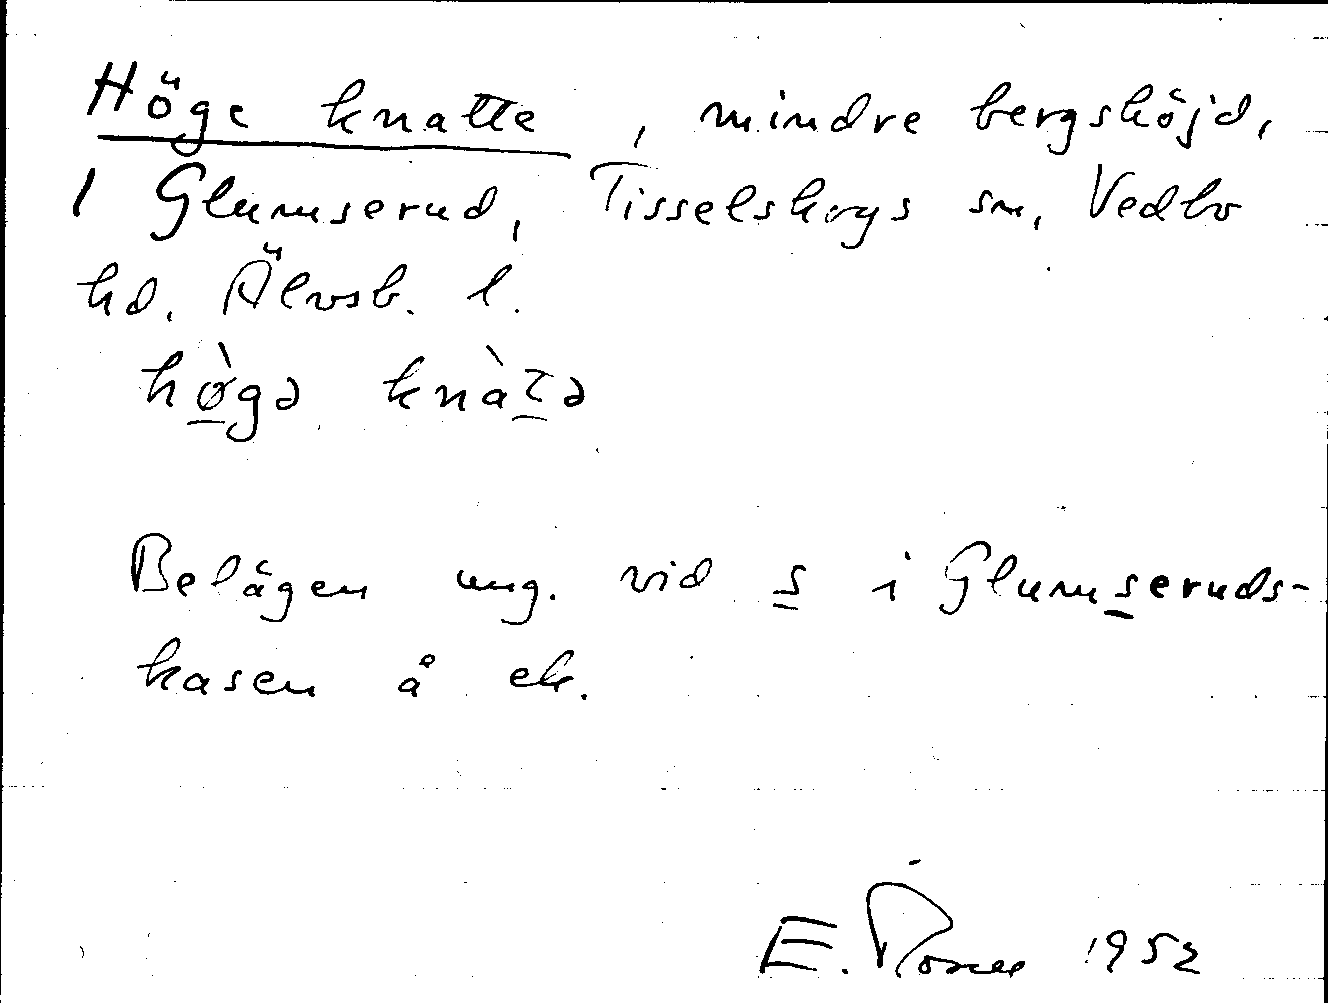 Höge knatte, mindre bergshöjd,
I Glumserud, Tisselskogs sn, Vedbo
hd. Älvsb. l.
hø̀gə knàtə
Belägen ung. vid s i Glumseruds-
kasen å ek.
E. 1952